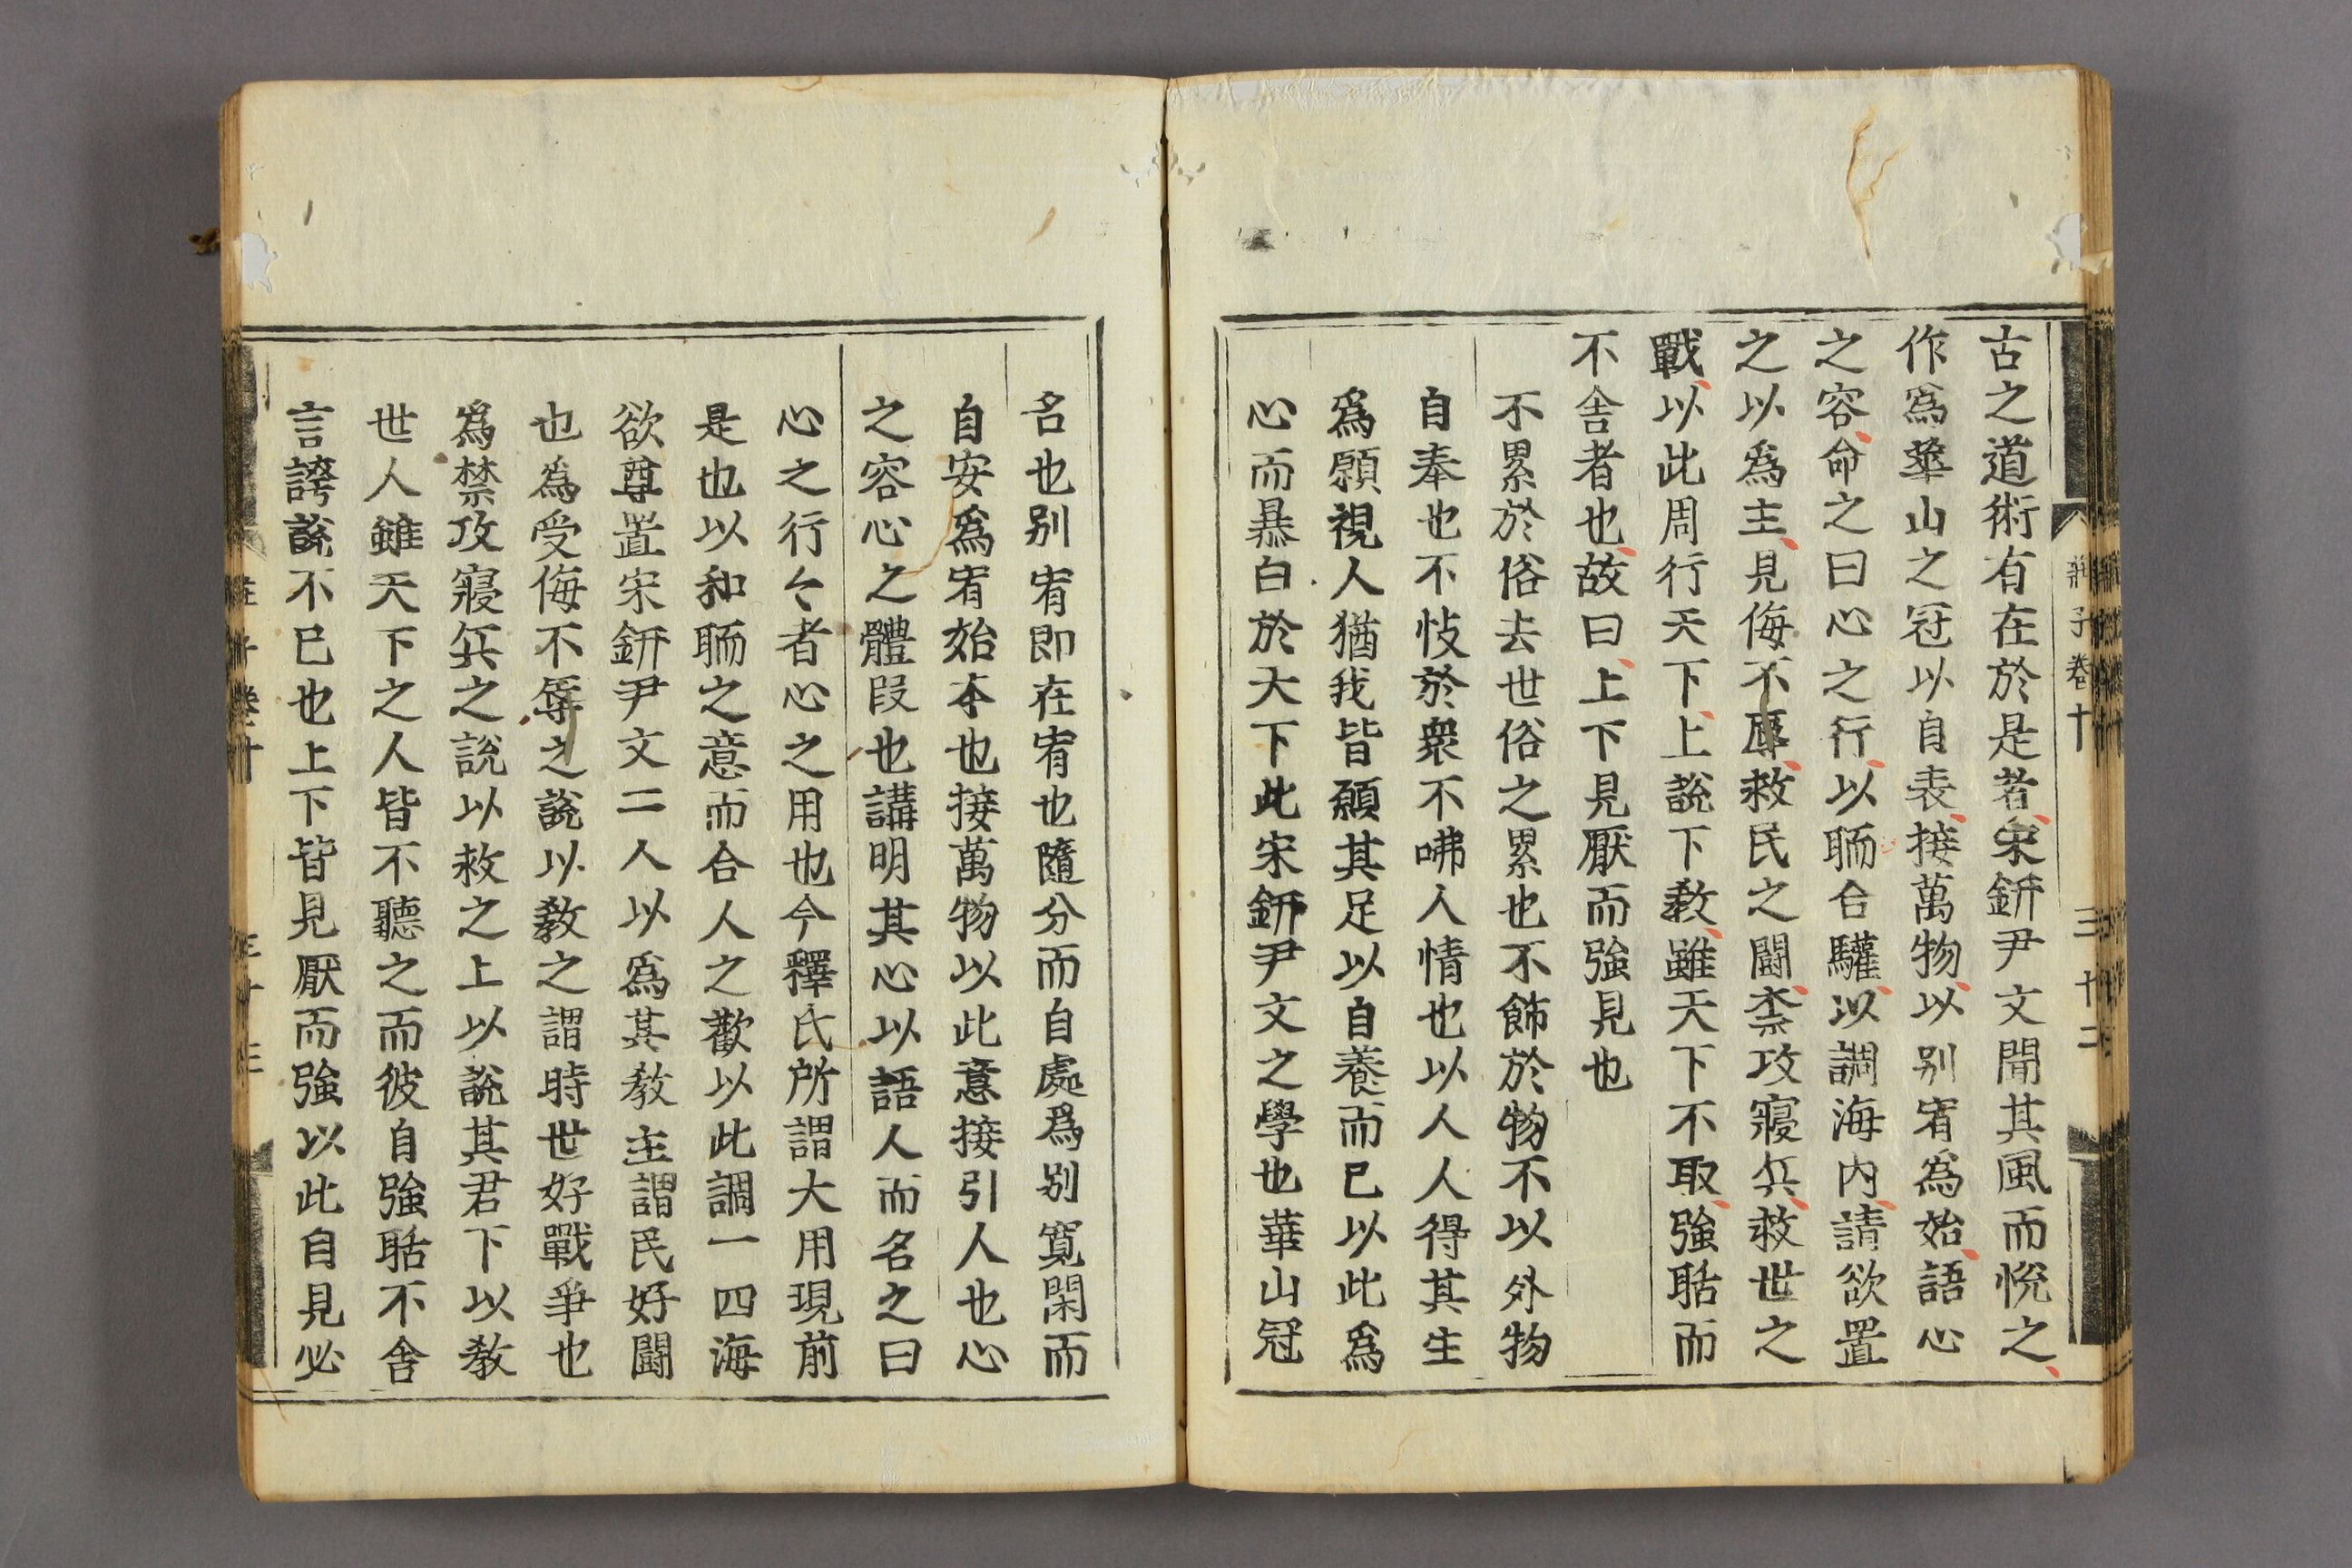 莊子卷十
三十二
古之道術有在於是者宋鈃尹文聞其風而悅之
作爲華山之冠以自表接萬物以别宥爲始語心
之容命之曰心之行以聏合驩以調海內請欲置
之以爲主見侮不辱救民之鬪禁攻寢兵救世之
戰以此周行天下上說下教雖天下不取強聒而
不舎者也故曰上下見厭而強見也
不累於俗去世俗之累也不飾於物不以外物
自奉也不忮於衆不咈人情也以人人得其生
爲願視人猶我皆願其足以自養而已以此爲
心而暴白於天下此宋鈃尹文之學也華山冠
名也别宥即在宥也隨分而自處爲别寬閑而
自安爲宥始本也接萬物以此意接引人也心
之容心之體段也講明其心以語人而名之曰
心之行〻者心之用也今釋氏所謂大用現前
是也以和聏之意而合人之歡以此調一四海
欲尊置宋鈃尹文二人以爲其教主謂民好鬪
也爲受侮不辱之說以教之謂時世好戰爭也
爲禁攻寢兵之說以救之上以說其君下以教
世人雖天下之人皆不聽之而彼自強聒不舎
言誇說不已也上下皆見厭而強以此自見必
莊子卷十